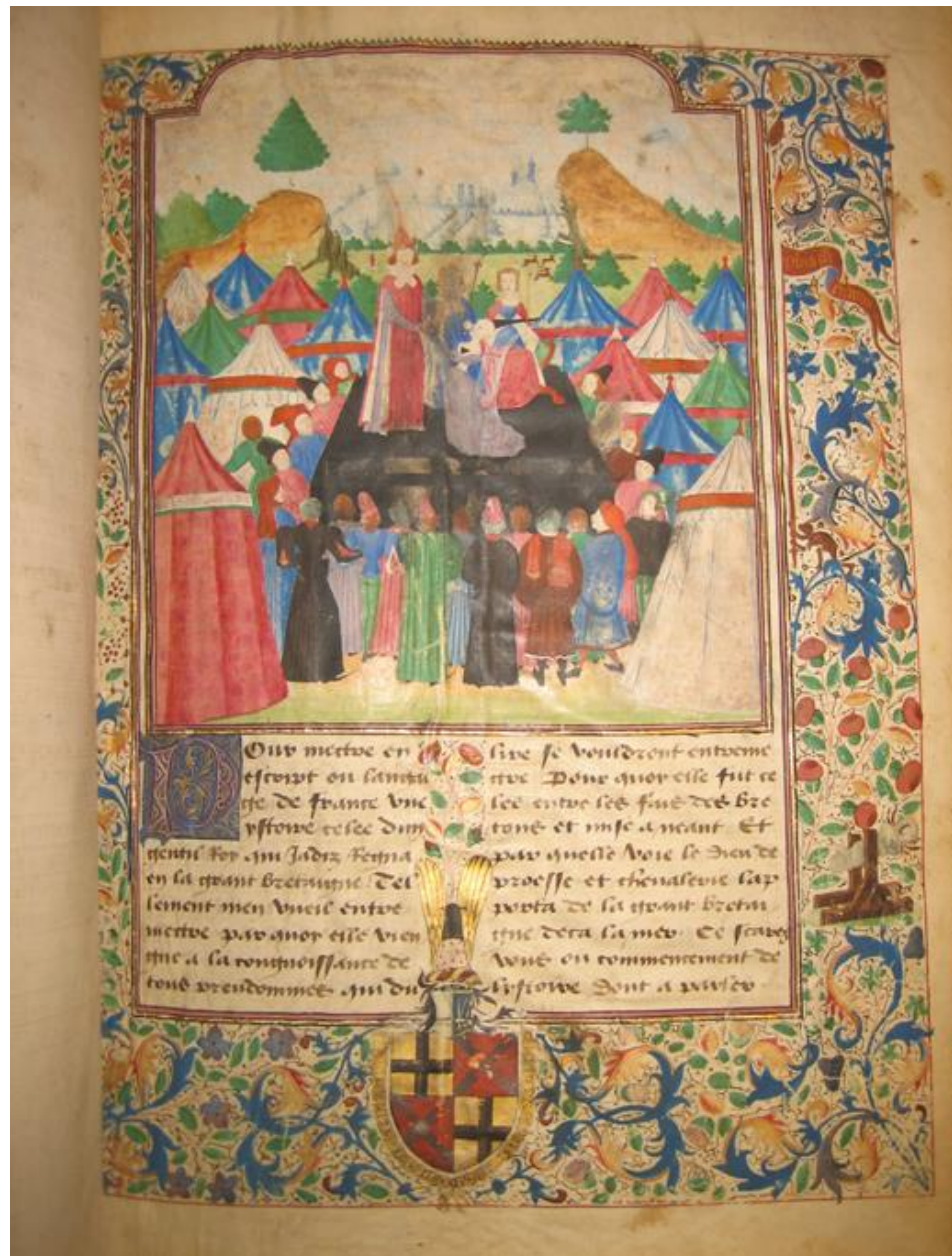 Pour mettre en
escript ou langa
ge de france vne
ystoire celee dun
gentil Roy qui Jadiz Regna
en la grant bretaigne Tel
lement men vueil entre
mettre par quoy elle vien
gne a la congnoissance de
tous preudommes qui du
lire se vouldront entreme
ttre Pour quoy elle fut ce
lee entre les fais des bre
tons et mise a neant Et
par quelle voie le dieu de
proesse et cheualerie lap
porta de la grant bretai
gne deca la mer Ce scarez
vous ou commencement de
lystoire dont a parler